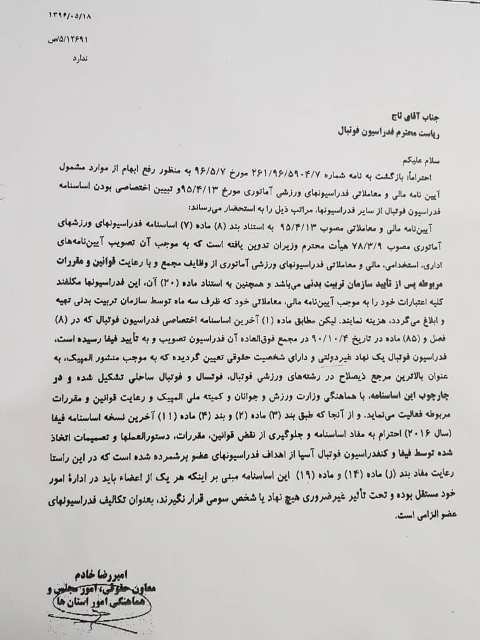 ۱۳۹۶/۰۵/۱۸
۵/۱۲۶۹۱/ص
ندارد
جناب آقای تاج
ریاست محترم فدراسیون فوتبال
سلام علیکم
احتراماً، بازگشت به نامه شماره ۲۶۱/۹۶/۵۹۰۴/۷ مورخ ۹۶/۵/۷ به منظور رفع ابهام از موارد مشمول
آیین نامه مالی و معاملاتی فدراسیونهای ورزشی آماتوری مورخ ۹۵/۴/۱۳و تبیین اختصاصی بودن اساسنامه
فدراسیون فوتبال از سایر فدراسیونها، مراتب ذیل را به استحضار می‌رساند:
آیین‌نامه مالی و معاملاتی مصوب ۹۵/۴/۱۳ به استناد بند (۸) ماده (۷) اساسنامه فدراسیونهای ورزشهای
آماتوری مصوب ۷۸/۳/۹ هیأت محترم وزیران تدوین یافته است که به موجب آن تصویب آیین‌نامه‌های
اداری، استخدامی، مالی و معاملاتی فدراسیونهای ورزشی آماتوری از وظایف مجمع و با رعایت قوانین و مقررات
مربوطه پس از تأیید سازمان تربیت بدنی می‌باشد و همچنین به استناد ماده (۲۰) آن، این فدراسیونها مکلفند
کلیه اعتبارات خود را به موجب آیین‌نامه مالی، معاملاتی خود که ظرف سه ماه توسط سازمان تربیت بدنی تهیه
و ابلاغ می‌گردد، هزینه نمایند. لیکن مطابق ماده (۱) آخرین اساسنامه اختصاصی فدراسیون فوتبال که در (۸)
فصل و (۸۵) ماده در تاریخ ۹۰/۱۰/۴ در مجمع فوق‌العاده آن فدراسیون تصویب و به تأیید فیفا رسیده است،
فدراسیون فوتبال یک نهاد غیردولتی و دارای شخصیت حقوقی تعیین گردیده که به موجب منشور المپیک، به
عنوان بالاترین مرجع ذیصلاح در رشته‌های ورزشی فوتبال، فوتسال و فوتبال ساحلی تشکیل شده و در
چارچوب این اساسنامه، با هماهنگی وزارت ورزش و جوانان و کمیته ملی المپیک و رعایت قوانین و مقررات
مربوطه فعالیت می‌نماید. و از آنجا که طبق بند (۳) ماده (۲) و بند (۴) ماده (۱۱) آخرین نسخه اساسنامه فیفا
(سال ۲۰۱۶) احترام به مفاد اساسنامه و جلوگیری از نقض قوانین، مقررات، دستورالعملها و تصمیمات اتخاذ
شده توسط فیفا و کنفدراسیون فوتبال آسیا از اهداف فدراسیونهای عضو برشمرده شده است که در این راستا
رعایت مفاد بند (ز) ماده (۱۴) و ماده (۱۹) این اساسنامه مبنی بر اینکه هر یک از اعضاء باید در ادارهٔ امور
خود مستقل بوده و تحت تأثیر غیرضروری هیچ نهاد یا شخص سومی قرار نگیرند، بعنوان تکالیف فدراسیونهای
عضو الزامی است.
امیررضا خادم
معاون حقوقی، امور مجلس و
هماهنگی امور استان ها